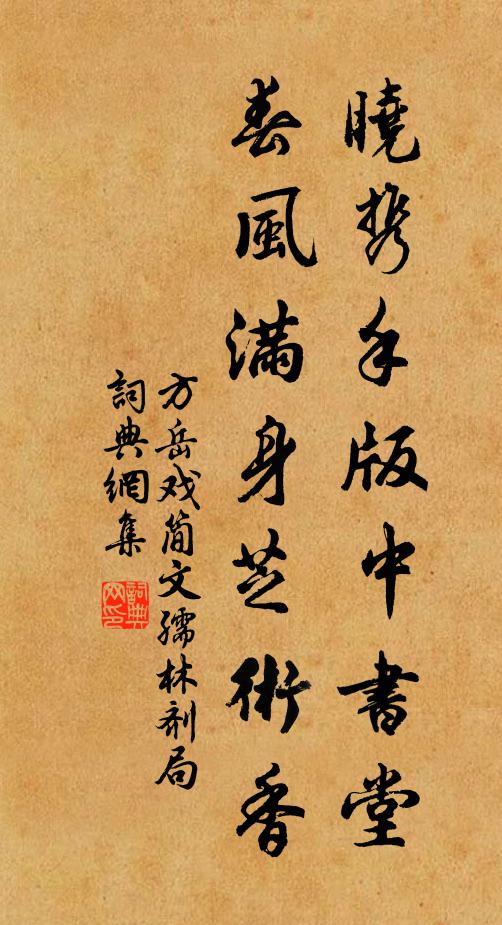 曉携手版中書堂
春風滿身芝術香
方岳戏简文孺林剂局
詞典網集
詞典
网印